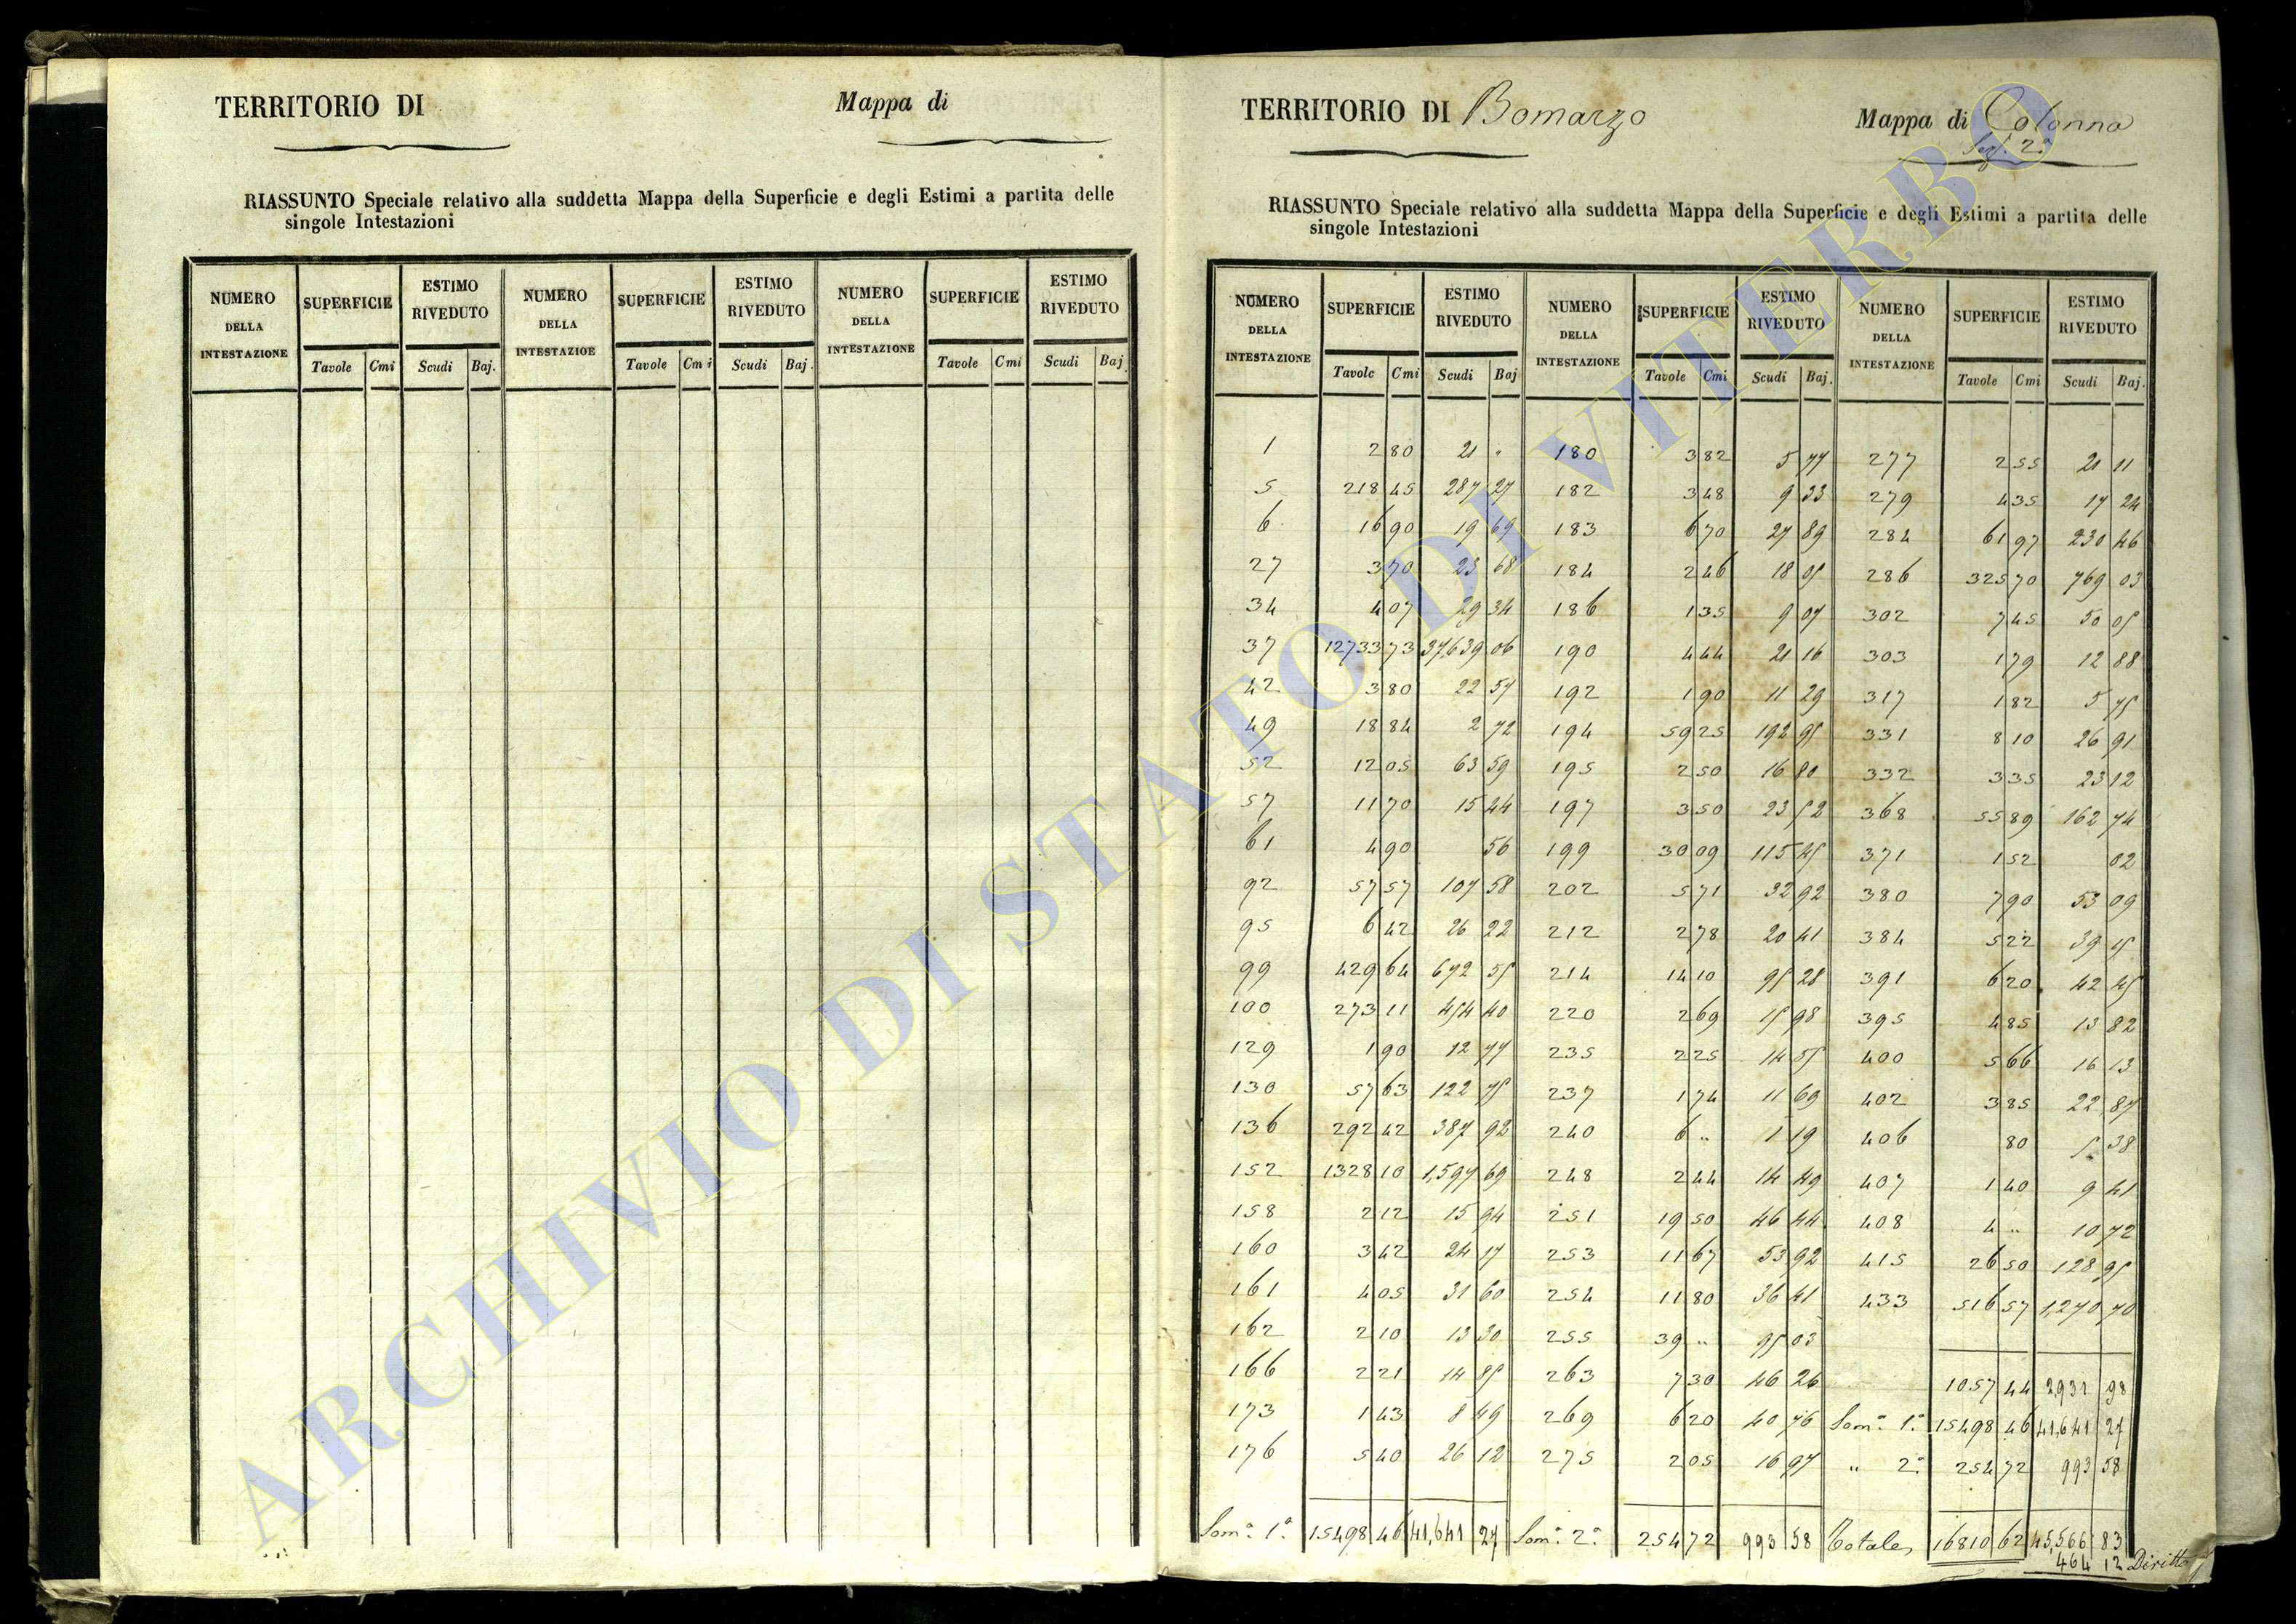 TERRITORIO DI
Mappa di
RIASSUNTO Speciale relativo alla suddetta Mappa della Superficie e degli Estimi a partita delle
singole Intestazioni
NUMERO DELLA INTESTAZIONE SUPERFICIE ESTIMO RIVEDUTO NUMERO DELLA INTESTAZIOE SUPERFICIE ESTIMO RIVEDUTO NUMERO DELLA INTESTAZIONE SUPERFICIE ESTIMO RIVEDUTO
Tavole Cmi Scudi Baj. Tavole Cmi Scudi Baj. Tavole Cmi Scudi Baj.
TERRITORIO DI Bomarzo
Mappa di Colonna
Sez. 2ª
RIASSUNTO Speciale relativo alla suddetta Mappa della Superficie e degli Estimi a partita delle
singole Intestazioni
NUMERO DELLA INTESTAZIONE SUPERFICIE ESTIMO RIVEDUTO NUMERO DELLA INTESTAZIONE SUPERFICIE ESTIMO RIVEDUTO NUMERO DELLA INTESTAZIONE SUPERFICIE ESTIMO RIVEDUTO
Tavole Cmi Scudi Baj Tavole Cmi Scudi Baj. Tavole Cmi Scudi Baj.
1 2 80 21 " 180 3 82 5 77 277 2 55 21 11
5 218 45 287 27 182 3 48 9 33 279 4 35 17 24
6 16 90 19 69 183 6 70 27 89 284 61 97 230 46
27 3 70 23 68 184 2 46 18 05 286 325 70 769 03
34 4 07 29 34 186 1 35 9 07 302 7 45 50 05
37 12733 73 37,639 06 190 4 44 21 16 303 1 79 12 88
42 3 80 22 57 192 1 90 11 29 317 1 82 5 75
49 18 84 2 72 194 59 25 192 95 331 8 10 26 91
52 12 05 63 59 195 2 50 16 80 332 3 35 23 12
57 11 70 15 44 197 3 50 23 52 368 55 89 162 74
61 4 90 56 199 30 09 115 45 371 1 52 02
92 57 57 107 58 202 5 71 32 92 380 7 90 53 09
95 6 42 26 22 212 2 78 20 41 384 5 22 39 15
99 429 64 672 55 214 14 10 95 28 391 6 20 42 45
100 273 11 454 40 220 2 69 15 98 395 4 85 13 82
129 1 90 12 77 235 2 25 14 55 400 5 66 16 13
130 57 63 122 75 237 1 74 11 69 402 3 85 22 87
136 292 42 387 92 240 6 " 1 19 406 80 5 38
152 1328 10 1,597 69 248 2 44 14 49 407 1 40 9 41
158 2 12 15 94 251 19 50 46 44 408 4 " 10 72
160 3 42 24 17 253 11 67 53 92 415 26 50 128 95
161 4 05 31 60 254 11 80 36 41 433 516 57 1,270 70
162 2 10 13 30 255 39 " 95 03
166 2 21 14 85 263 7 30 46 26 1057 44 2,931 98
173 1 43 8 49 269 6 20 40 76 Som.ª 1.ª 15498 46 41,641 27
176 5 40 26 12 275 2 05 16 97 " 2.ª 254 72 993 58
Som.ª 1.ª 15498 46 41,641 27 Som.ª 2.ª 254 72 993 58 Totale 16810 62 45,566 83
464 12 Diritto
ARCHIVIO DI STATO DI VITERBO